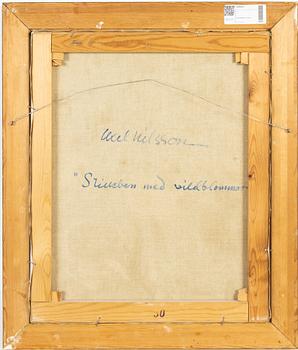 Axel Nilsson
"Stilleben med vildblommor